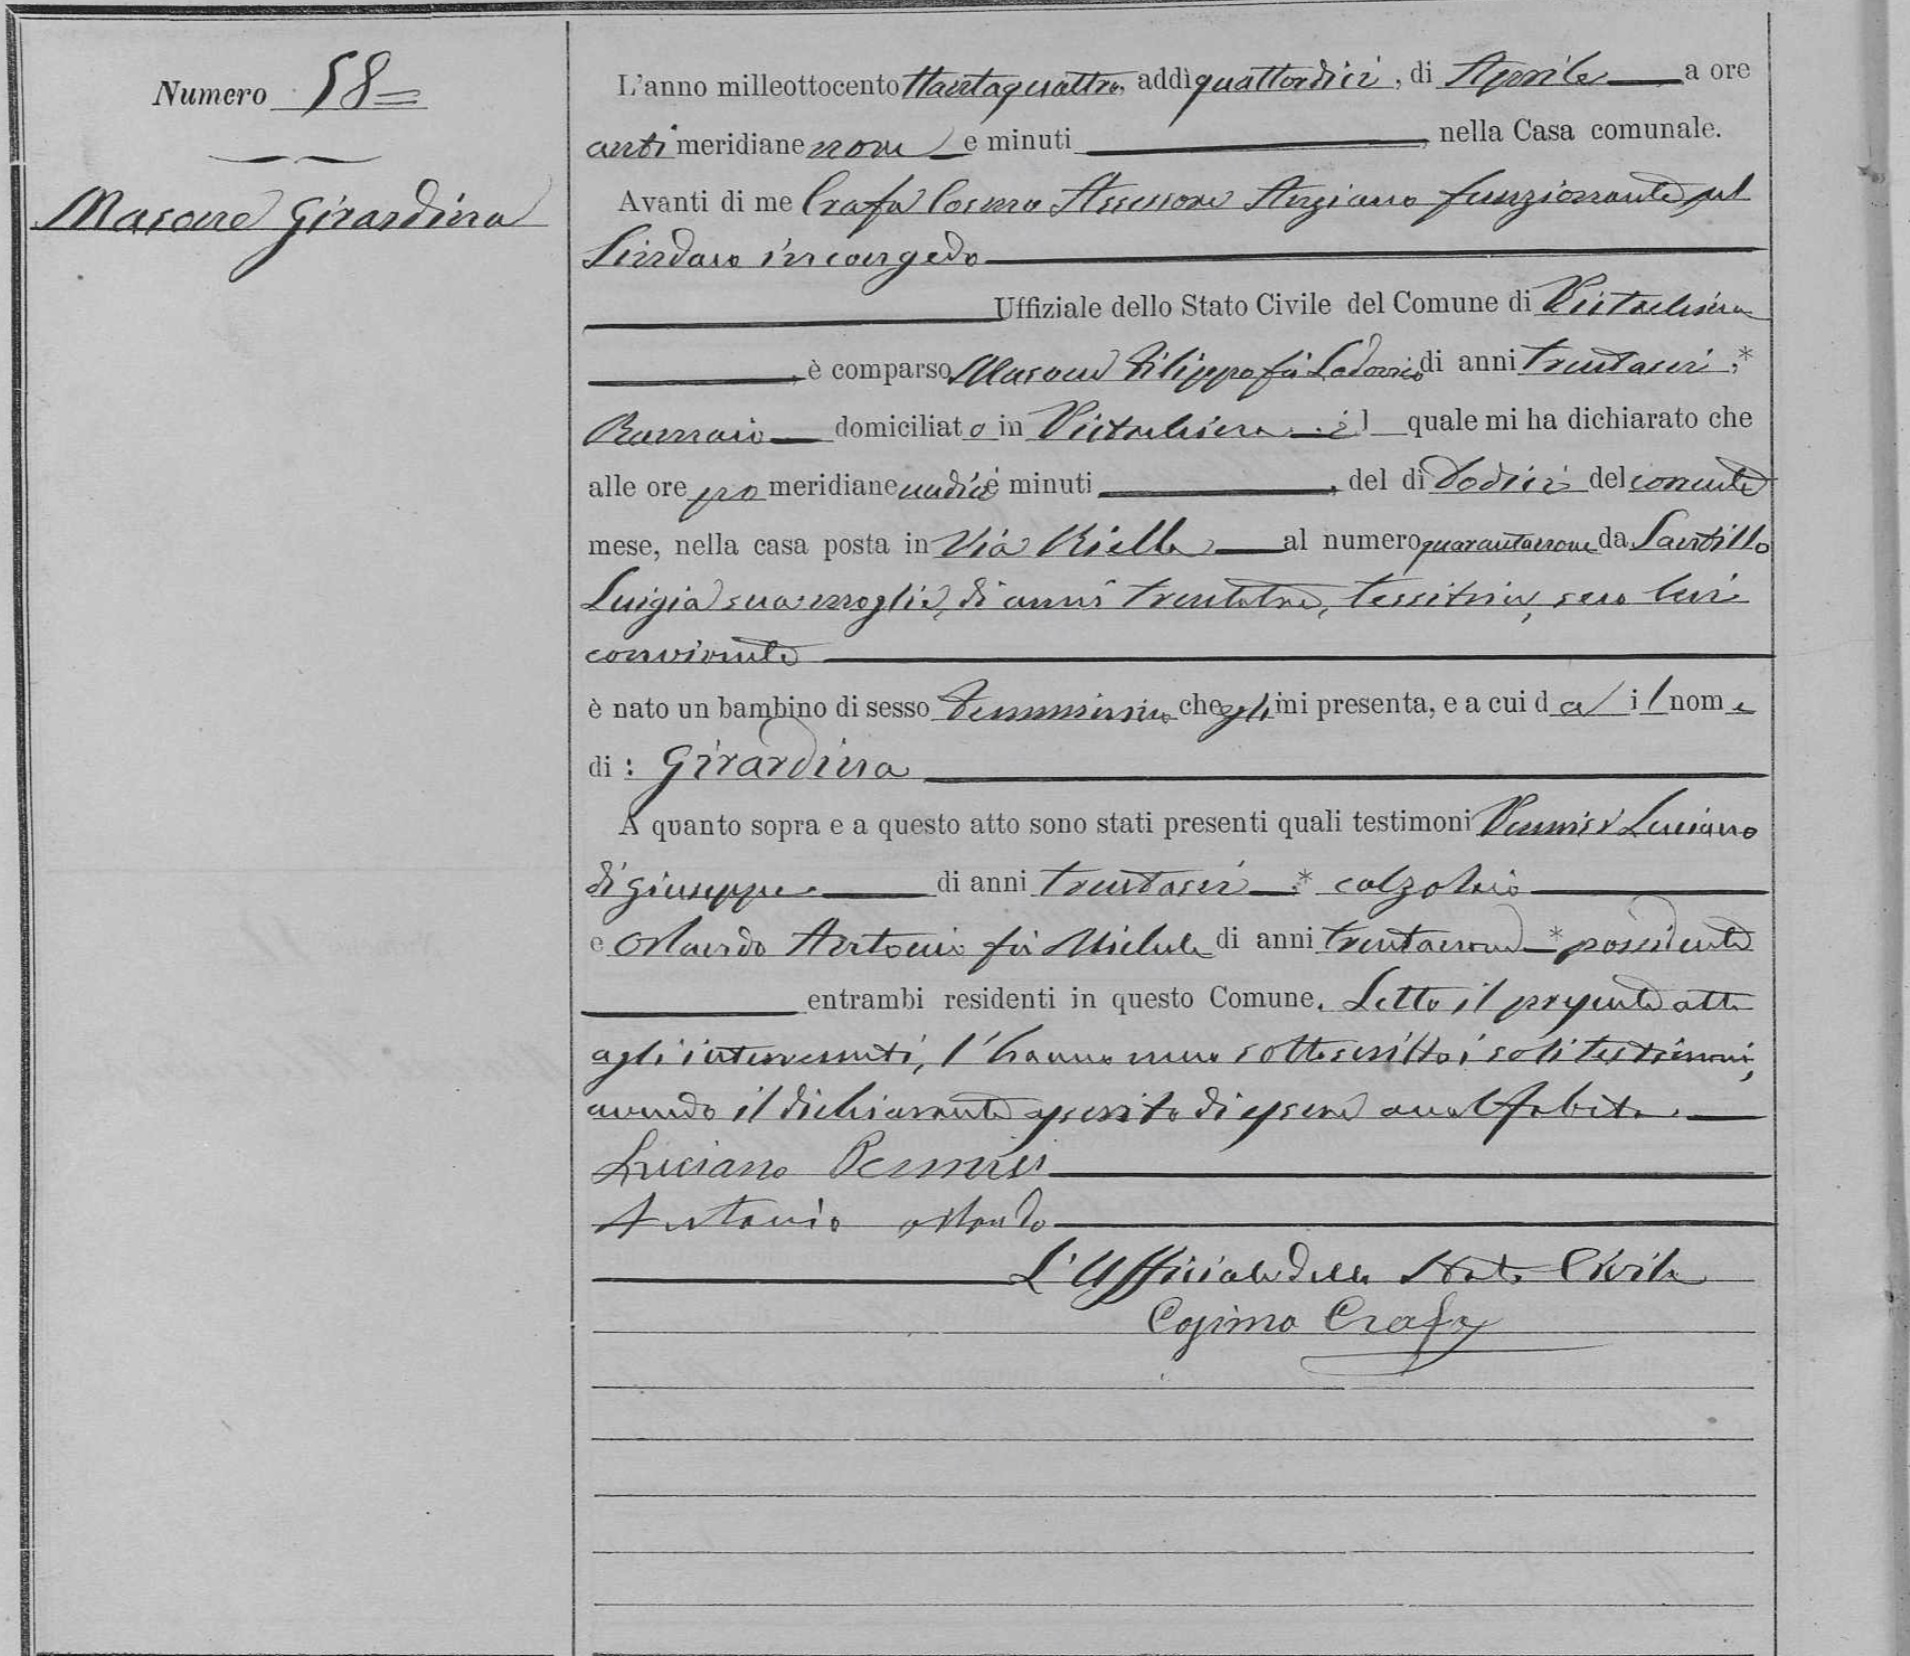 Numero 58=
Masone Girardina
L'anno milleottocento ttantaquattro, addì quattordici, di Aprile a ore
anti meridiane nove e minuti , nella Casa comunale.
Avanti di me Crafa Cosmo Assessore Anziano funzionante pel
Sindaco in congedo
Uffiziale dello Stato Civile del Comune di Pietrelcina
, è comparso Masone Filippo fù Lodovico di anni trentasei, *
Ramaio domiciliato in Pietrelcina il quale mi ha dichiarato che
alle ore po meridiane undici e minuti , del dì dodici del corrente
mese, nella casa posta in Via Riella al numero quarantanove da Santillo
Luigia sua moglie, di anni trentatre, tessitrice, seco lui
convivente
è nato un bambino di sesso femminino che egli mi presenta, e a cui dà il nome
di : Girardina
A quanto sopra e a questo atto sono stati presenti quali testimoni Pennisi Luciano
di Giuseppe di anni trentasei * calzolaio
e Orlando Antonio fù Michele di anni trentanove * possidente
entrambi residenti in questo Comune. Letto il presente atto
agli intervenuti, l'hanno meco sottoscritto i soli testimoni,
avendo il dichiarante asserito di essere analfabeta.
Luciano Pennisi
Antonio Orlando
L'Ufficiale dello Stato Civile
Cosimo Crafa